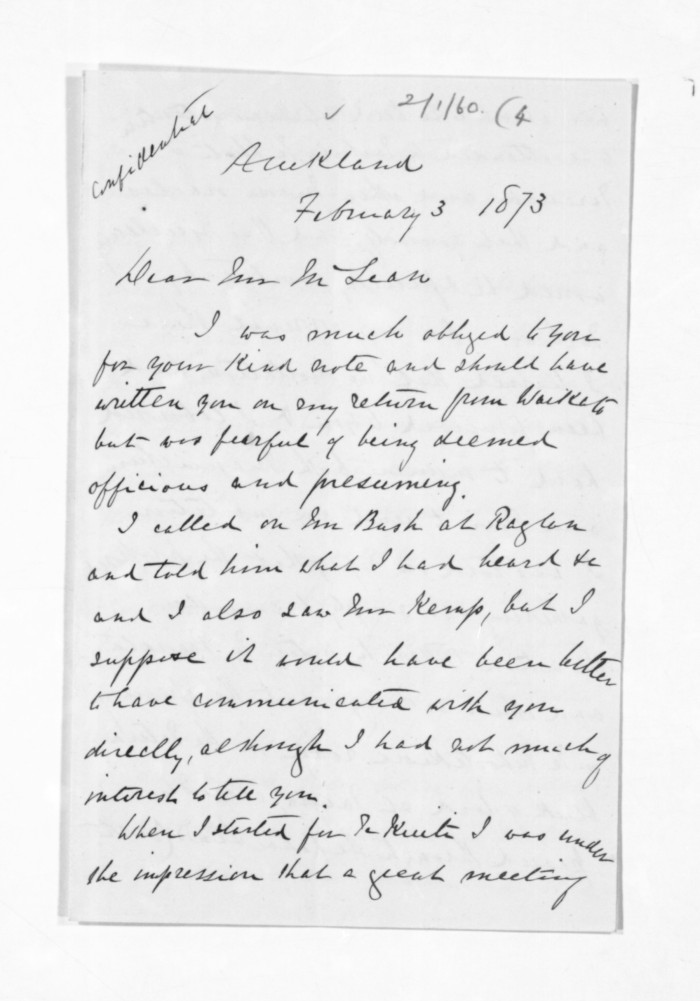 2/1/60. (4
Confidential
Auckland
February 3 1873
Dear Mr McLean
I was much obliged to you
for your kind note and should have
written you on my return from Waikato
but was fearful of being deemed
officious and presuming.
I called on Mr Bush at Raglan
and told him what I had heard &c
and I also saw Mr Kemp, but I
suppose it would have been better
to have communicated with you
directly, although I had not much of
interest to tell you.
When I started for Te Kuiti I was under
the impression that a great meeting